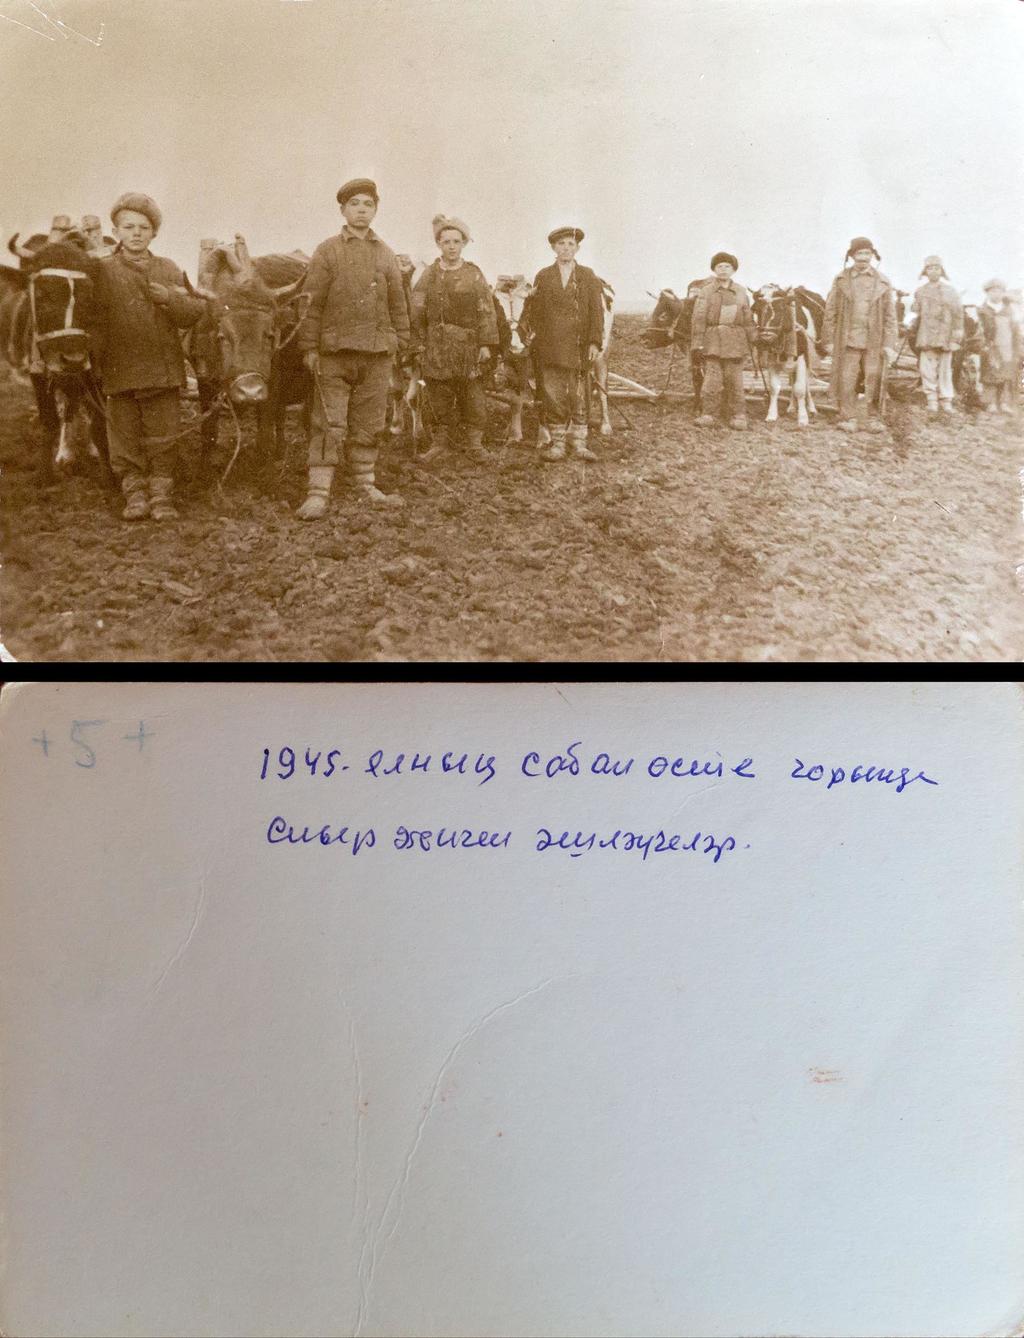 + 5 +
1945. елның сабан өсте чорында
Сыер җиккән эшләүчеләр.